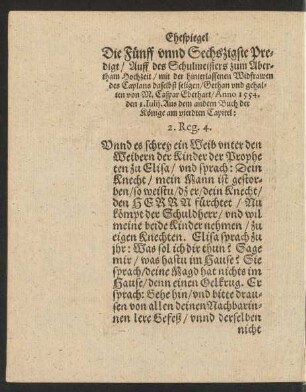 Ehespiegel
Die Fünff vnnd Sechszigste Pre-
digt / Auff des Schulmeisters zum Aber-
tham Hochzeit / mit der hinterlassenen Widfrawen
des Caplans daselbst seligen / Gethan vnd gehal-
ten von M. Caspar Eberhart / Anno 1554.
den 1. Iulij. Aus dem andern Buch der
Könige am vierdten Capitel:
2. Reg. 4.
Vnnd es schrey ein Weib vnter den
Weibern der Kinder der Prophe
ten zu Elisa / vnd sprach: Dein
Knecht / mein Mann ist gestor-
ben / so weistu / dz er / dein Knecht /
den HERRN fürchtet / Nu
kömpt der Schuldherr / vnd wil
meine beide Kinder nehmen / zu
eigen Knechten. Elisa sprach zu
jhr: Was sol ich dir thun? Sage
mir / was hastu im Hause? Sie
sprach / deine Magd hat nichts im
Hause / denn einen Oelkrug. Er
sprach: Gehe hin / vnd bitte draus-
sen von allen deinen Nachbarin-
nen lere Gefeß / vnnd derselben
nicht